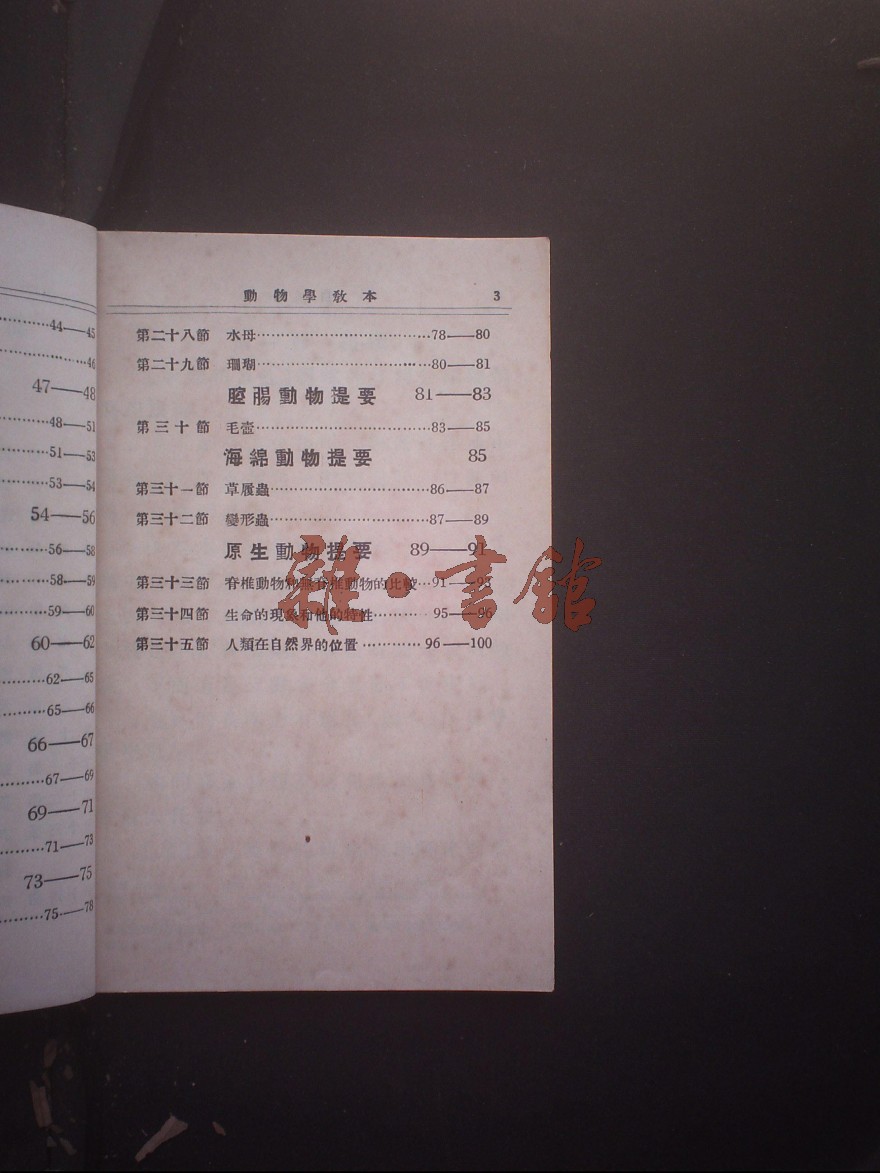 44——45
46
47——48
48——51
51——53
53——54
54——56
56——58
58——59
59——60
60——62
62——65
65——66
66——67
67——69
69——71
71——73
73——75
75——78
動物學教本 3
第二十八節 水母……78——80
第二十九節 珊瑚……80——81
腔腸動物提要 81——83
第三十節 毛壺……83——85
海綿動物提要 85
第三十一節 草履蟲……86——87
第三十二節 變形蟲……87——89
原生動物提要 89——91
第三十三節 脊椎動物和無脊椎動物的比較…91——95
第三十四節 生命的現象和他的特性……95——96
第三十五節 人類在自然界的位置……96——100
雜·書館